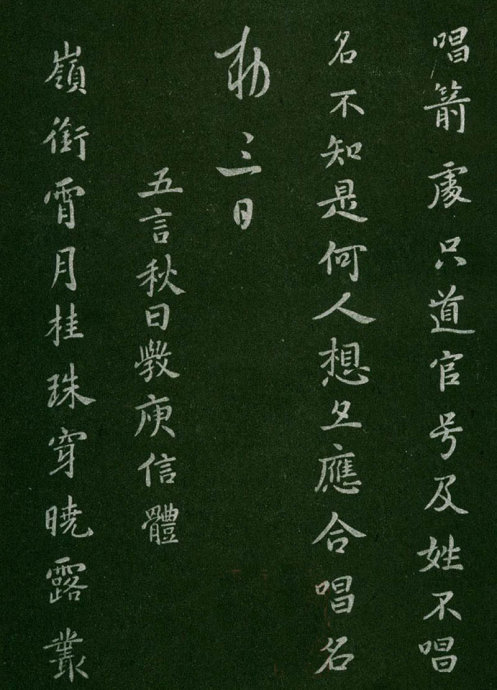 唱箭處只道官号及姓不唱
名不知是何人想應合唱名
勅三日
五言秋日斆庾信體
嶺銜霄月桂珠穿曉露叢